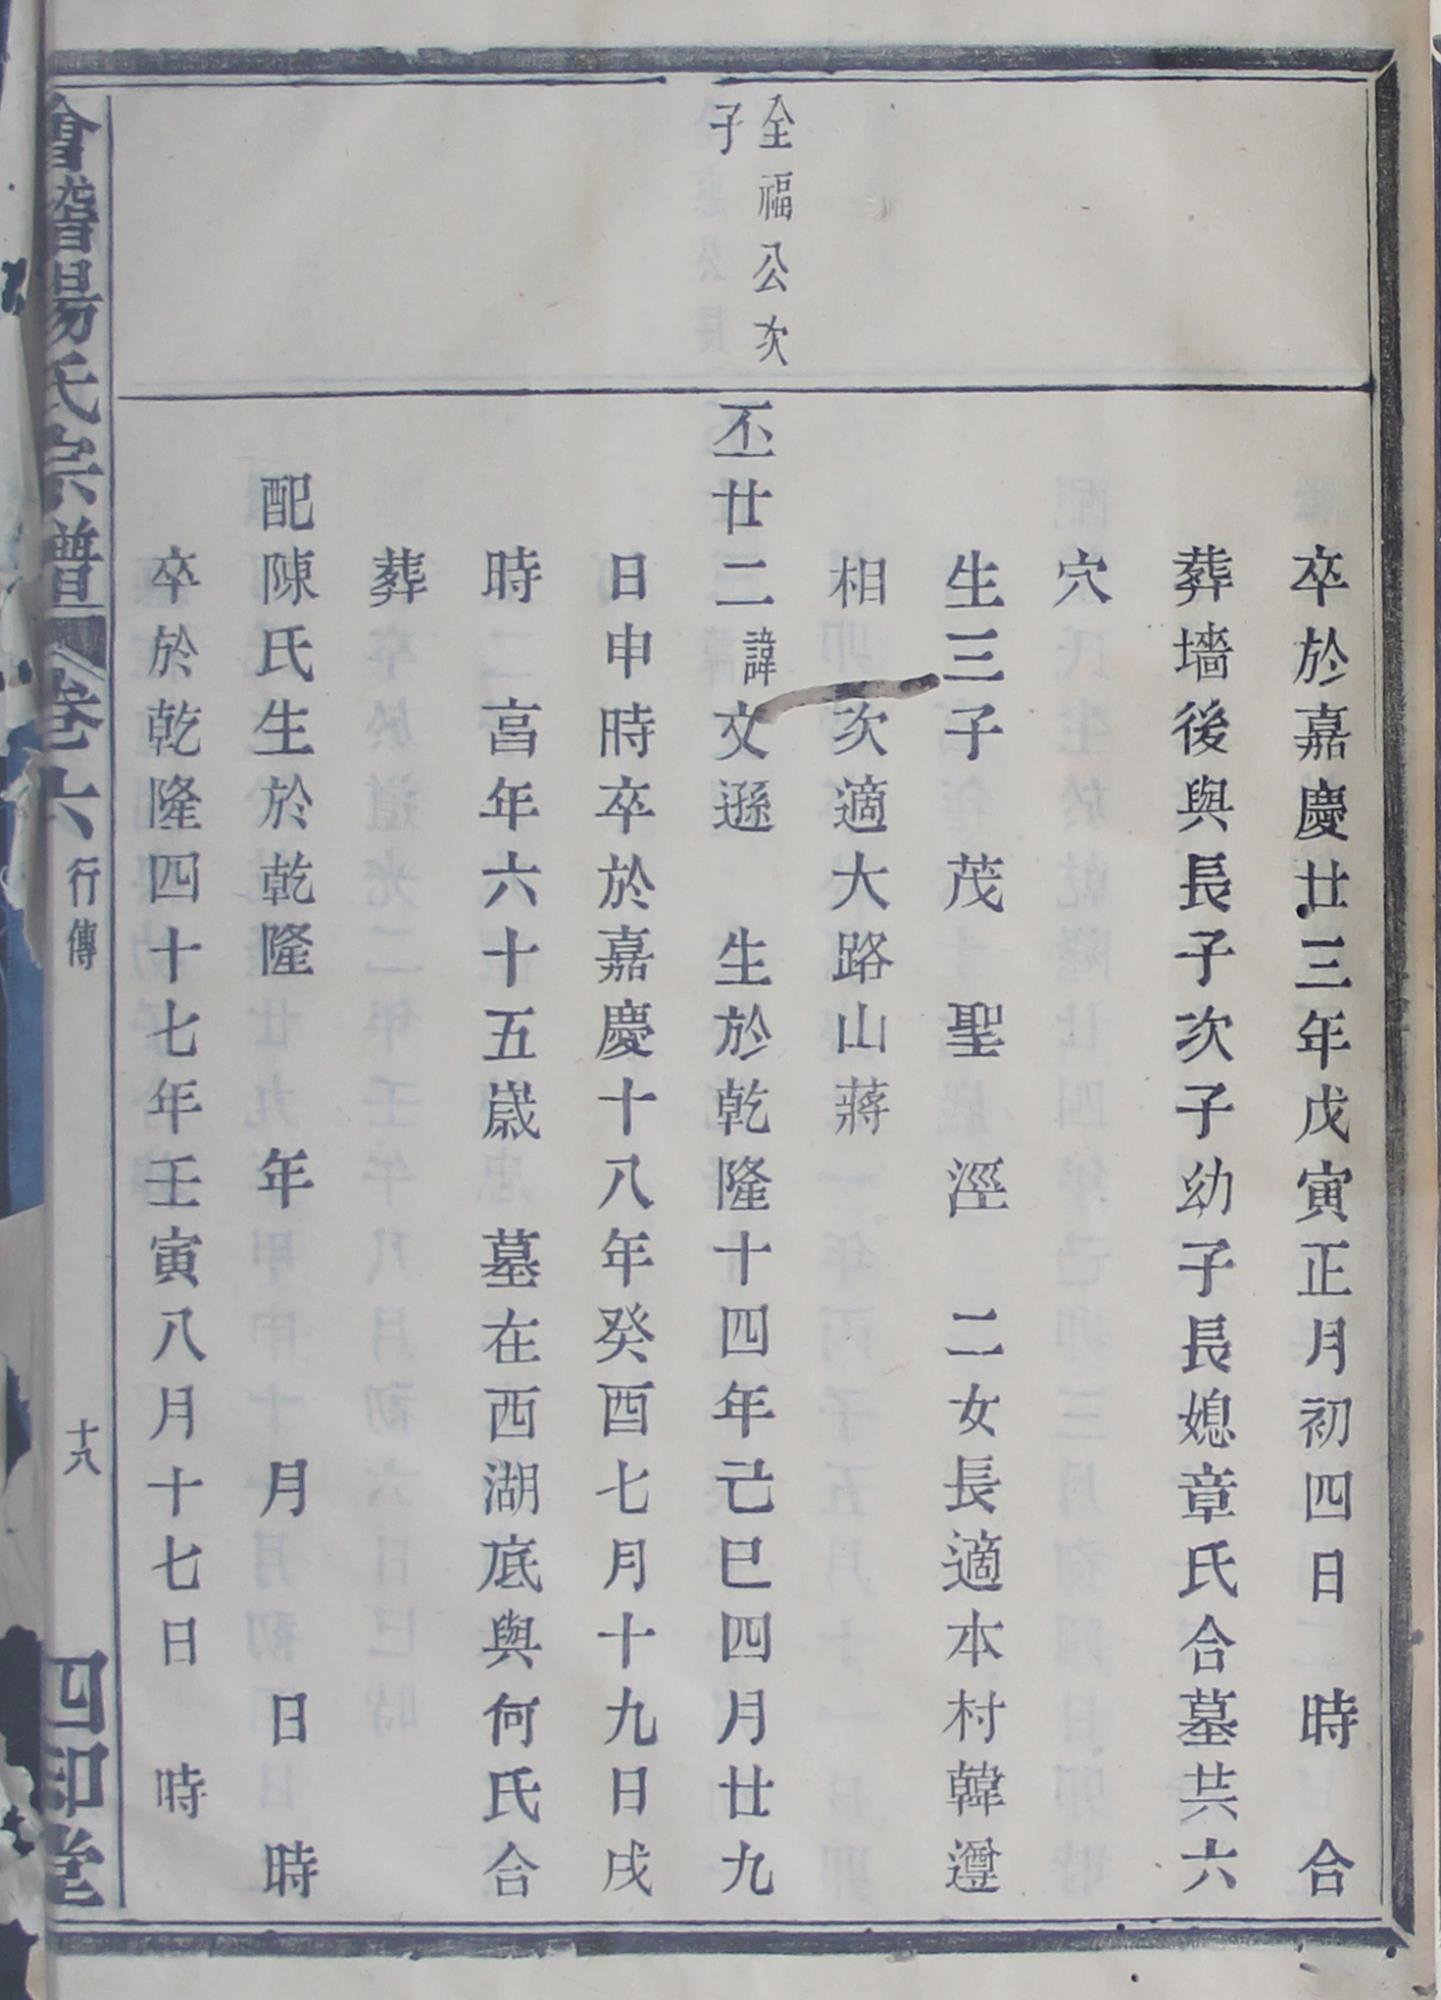 卒於嘉慶廿三年戊寅正月初四日　時　合
葬墻後與長子次子幼子長媳章氏合墓共六
穴
生三子　茂　聖　涇　二女長適本村韓遵
相次適大路山蔣
仝福公次
子
丕廿二諱文遜　生於乾隆十四年己巳四月廿九
日申時卒於嘉慶十八年癸酉七月十九日戌
時　亯年六十五歲　墓在西湖底與何氏合
葬
配陳氏生於乾隆　　年　　　月　　日　時
卒於乾隆四十七年壬寅八月十七日　時
會稽楊氏宗譜　卷六　行傳　十八　四知堂